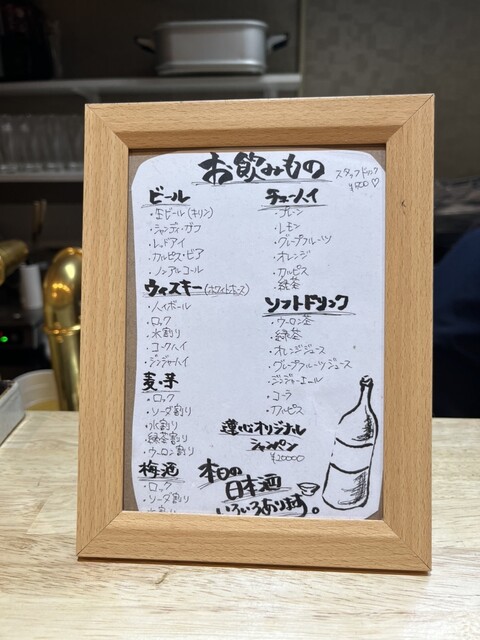 お飲みもの
スタッフドリンク
¥800♡
ビール
・生ビール(キリン)
・シャンディ・ガフ
・レッドアイ
・カルピス・ビア
・ノンアルコール
ウィスキー(ホワイトホース)
・ハイボール
・ロック
・水割り
・コークハイ
・ジンジャーハイ
麦・芋
・ロック
・ソーダ割り
・水割り
・緑茶割り
・ウーロン割り
梅酒
・ロック
・ソーダ割り
・水割り
チューハイ
・プレーン
・レモン
・グレープフルーツ
・オレンジ
・カルピス
・緑茶
ソフトドリンク
・ウーロン茶
・緑茶
・オレンジジュース
・グレープフルーツジュース
・ジンジャーエール
・コーラ
・カルピス
蓮心オリジナル
シャンパン
¥20000
本日の
日本酒
いろいろあります。